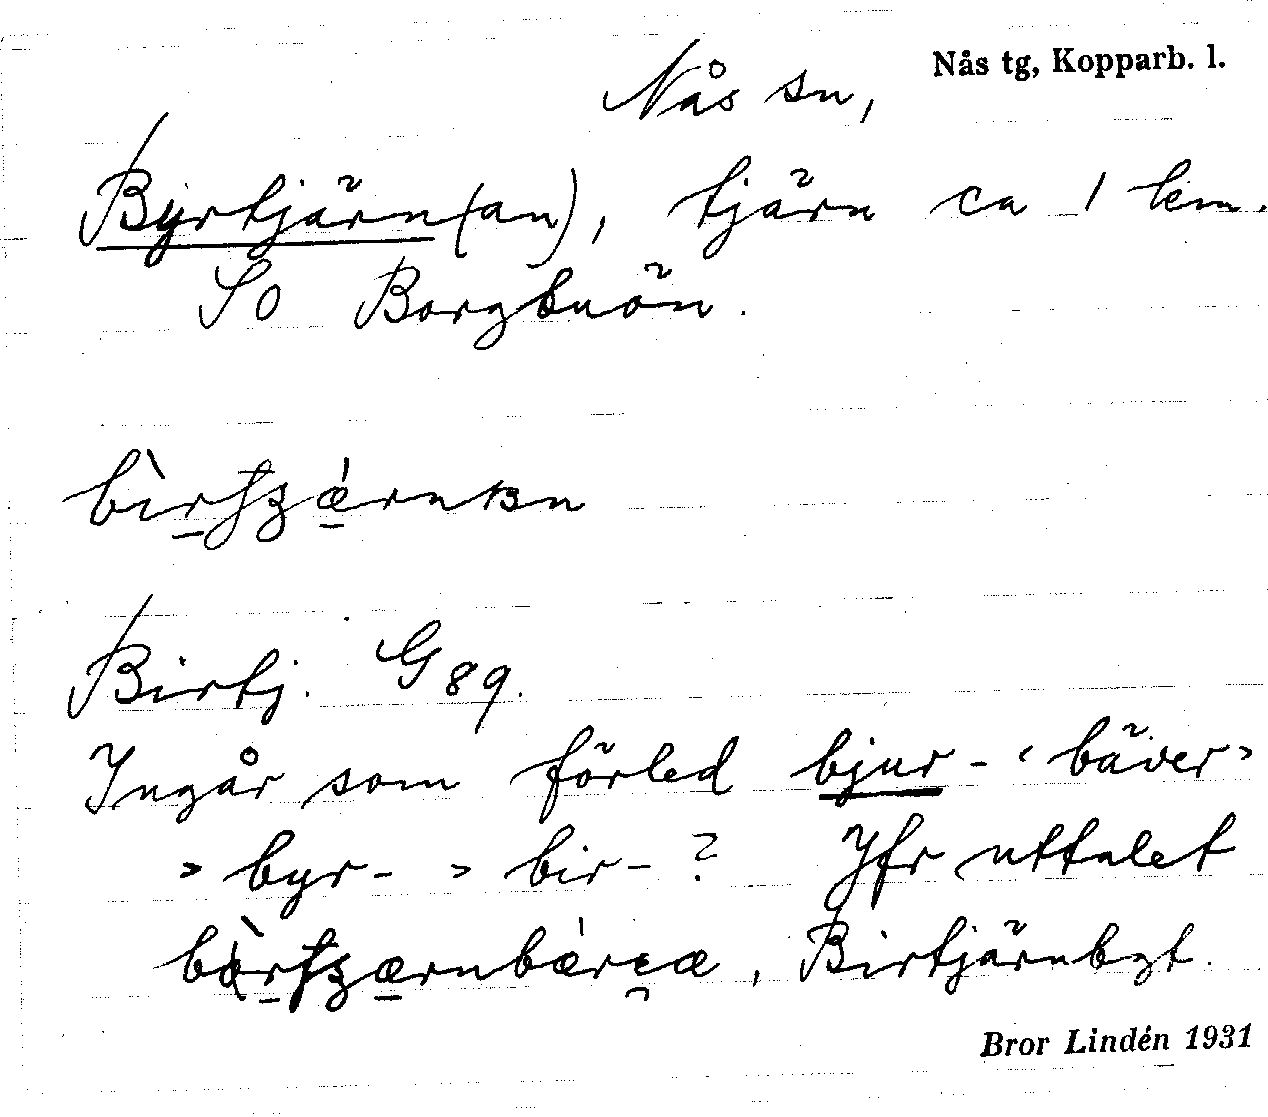 Nås tg, Kopparb. l.
Nås sn,
Byrtjärn(an), tjärn ca 1 km.
SO Borgbuön.
Birtj. G 89.
Ingår som förled bjur- ‹bäver›
> byr- > bir- ? Jfr uttalet
, Birtjärnbgt.
Bror Lindén 1931